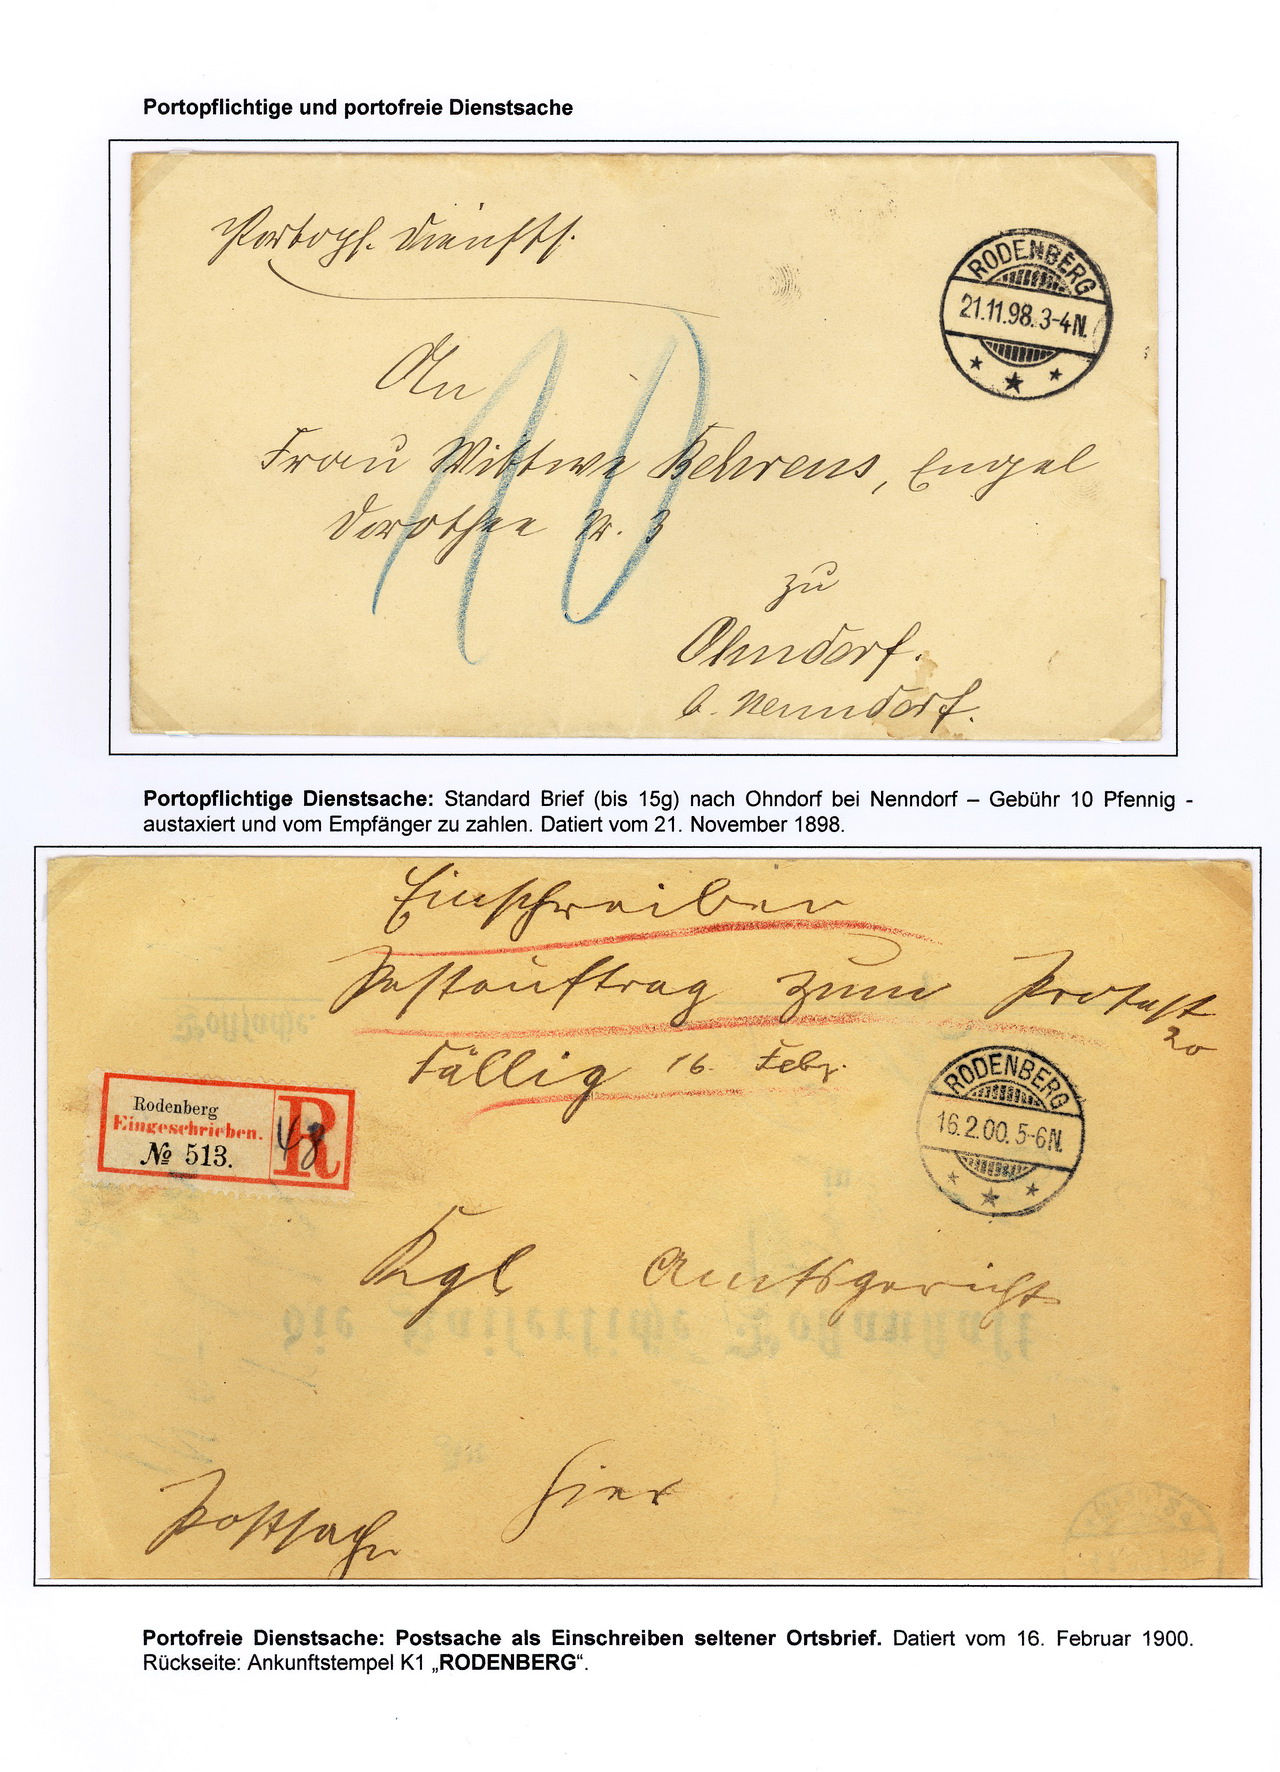 Portopflichtige und portofreie Dienstsache
Portopf. Diensts.
RODENBERG
21.11.98.3-4N.
An
10
Frau Wittwe Behrens, Engel
Dorothee Nr. 3
zu
Ohndorf.
b. Nenndorf.
Portopflichtige Dienstsache: Standard Brief (bis 15g) nach Ohndorf bei Nenndorf – Gebühr 10 Pfennig -
austaxiert und vom Empfänger zu zahlen. Datiert vom 21. November 1898.
Einschreiben
Postauftrag zum Protest
20
Fällig 16. Febr.
RODENBERG
16.2.00.5-6N.
Rodenberg
Eingeschrieben.
№ 513.
R
48
Kgl Amtsgericht
die Kaiserliche Postanstalt
hier
Postsache
Portofreie Dienstsache: Postsache als Einschreiben seltener Ortsbrief. Datiert vom 16. Februar 1900.
Rückseite: Ankunftstempel K1 „RODENBERG“.